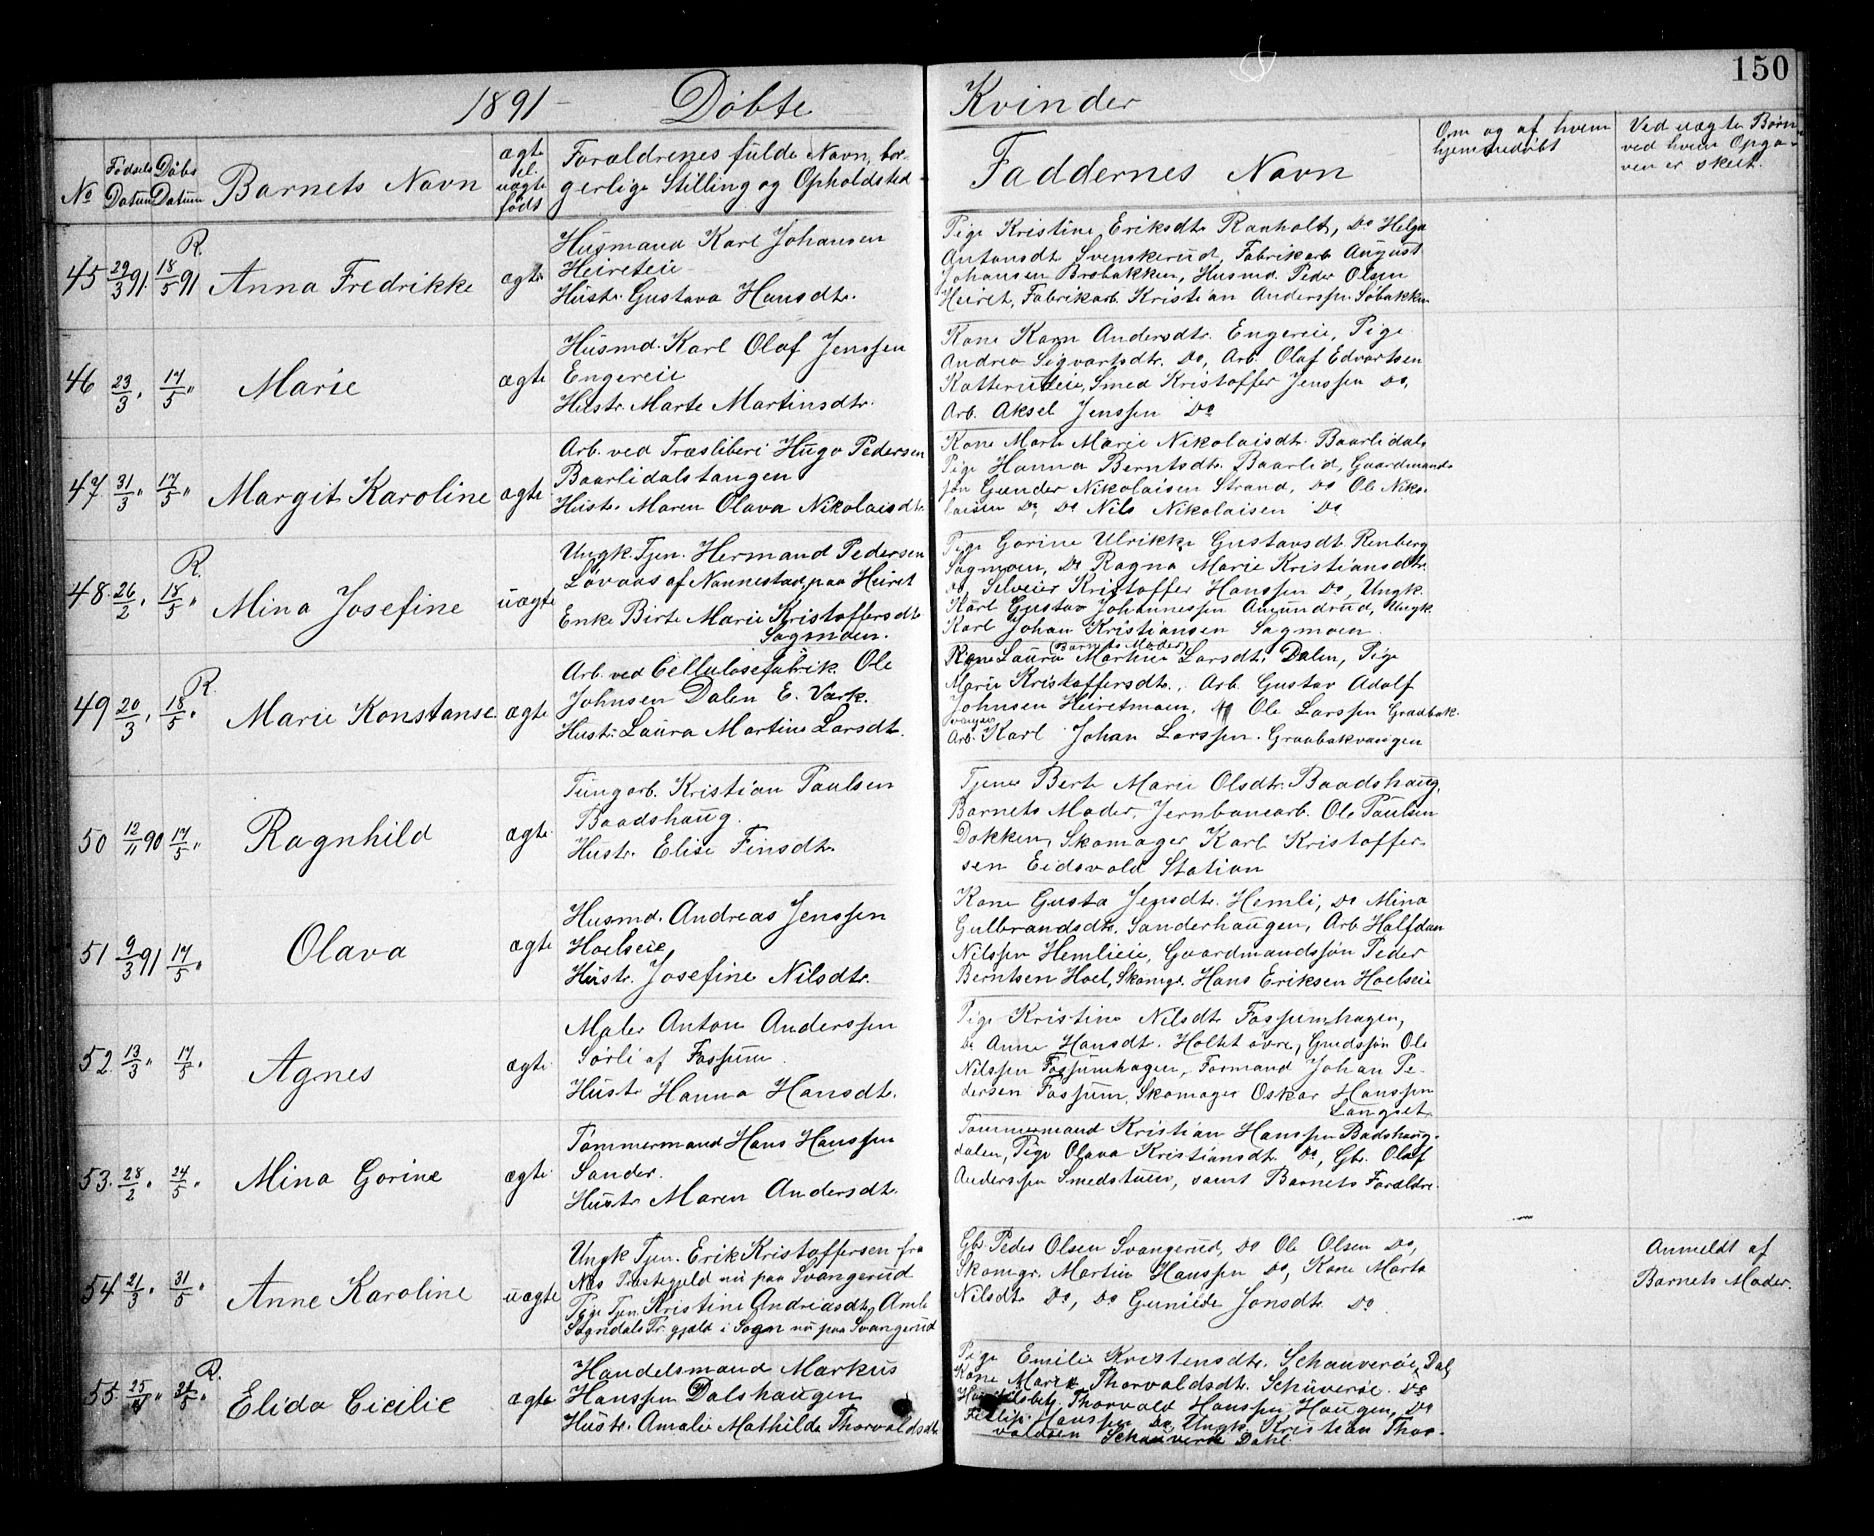 150
1891 – Døbte Kvinder
No
Fødsels Datum
Døbs Datum
Barnets Navn
ægte el. uægte født
Forældrenes fulde Navn, bor-
gerlige Stilling og Opholdsted
Faddernes Navn
Om og af hvem
hjemmedøbt
Ved uægte Børn
ved hvem Opga-
ven er skeet.
45 29/3 91. R. 18/5 91 Anna Fredrikke ægte
Husmand Karl Johansen
Heireteie
Hustr. Gustava Hansdtr.
Pige Kristine Eriksdtr. Ranholt, Do Helga
Antonsdt. Svenskerud, Fabrikarb. August
Johansen Brobakken, Husmd. Peder Olsen
Heiret, Fabrikarb. Kristian Anderssen Søbakken
46 23/3 " 17/5 " Marie ægte
Husmd. Karl Olaf Jenssen
Engereie
Hustr. Marte Martinsdtr.
Kone Karn Andersdtr. Engereie, Pige
Andrea Sigvartsdtr. Do, Arb. Olaf Edvartsen
Katterudeie, Smed Kristoffer Jenssen Do,
Arb. Aksel Jenssen Do
47 31/3 " 17/5 " Margit Karoline ægte
Arb. ved Træsliberi Hugo Pedersen
Baarlidalstangen
Hustr. Maren Olava Nikolaisdtr.
Kone Marte Marie Nikolaisdtr. Baarlidals
Pige Hanna Berntsdtr. Baarlid, Gaardmands-
søn Gunder Nikolaisen Strand, Do Ole Niko-
laisen Do, Do Nils Nikolaisen Do
48. 26/2 " R. 18/5 " Mina Josefine uægte
Ungk. Tjen. Hermand Pedersen
Løvaas af Nannestad, paa Heiret
Enke Birte Marie Kristoffersdtr
Sagmoen.
Pige Gorine Ulrikke Gustavsdt. Renberg
Sagmoen, Do Ragna Marie Kristiansdtr.
Do, Selveier Kristoffer Hanssen Do, Ungk.
Karl Gustav Johannessen Amundrud, Ungk.
Karl Johan Kristiansen Sagmoen
49 20/3 " R. 18/5 " Marie Konstanse ægte
Arb. ved Cellulosefabrik. Ole
Johnsen Dalen E. Værk.
Hustr. Laura Martine Larsdtr.
(Barnets Moder)
Kone Laura Martine Larsdtr. Dalen, Pige
Marie Kristoffersdtr., Arb. Gustav Adolf
Johnsen Heiretmoen, Ole Larssen Graabak-
vangen
Arb. Karl Johan Larssen. Graabakvangen
50 12/11 90 17/5 " Ragnhild ægte
Tüngarb. Kristian Paulsen
Baadshaug.
Hustr. Elise Finsdtr.
Tjener Berte Marie Olsdtr. Baadshaug,
Barnets Moder, Jernbanearb. Ole Paulsen
Dokken, Skomager Karl Kristoffer-
sen Eidsvold Station
51 9/3 91 17/5 " Olava ægte
Husmd. Andreas Jenssen
Hoelseie
Hustr. Josefine Nilsdtr.
Kone Gusta Jensdtr. Hemli, Do Mina
Gulbrandsdtr. Sanderhaugen, Arb. Halfdan
Nilssen Hemlieie, Gaardmandssøn Peder
Berntsen Hoel, Skomgr. Hans Eriksen Hoelseie
52. 13/3 " 17/5 " Agnes ægte
Maler Anton Anderssen
Sørli af Fossum
Hustr Hanna Hansdtr.
Pige Kristine Nilsdtr Fossumhagen,
Do Anne Hansdt. Holtet øvre, Grdssøn Ole
Nilssen Fossumhagen, Formand Johan Pe-
dersen Fossum, Skomager Oskar Hanssen
Langset
53. 28/2 " 24/5 " Mina Gorine ægte
Tømmermand Hans Hanssen
Sander.
Hustr Maren Andersdtr.
Tømmermand Kristian Hanssen Badshaug-
dalen, Pige Olava Kristiansdt. Do, Gbr. Olaf
Anderssen Smedstuen, samt Barnets Forældre.
54. 21/3 " 31/5 " Anne Karoline uægte
Ungk Tjen. Erik Kristoffersen fra
Næs Præstegjeld nu paa Svangerud
Pige Tjen. Kristine Andreasdtr. Amle
Sogndals Pr. gjæld i Sogn nu paa Svangerud
Gbr. Peder Olsen Svangerud, Do Ole Olsen Do,
Skomgr. Martin Hanssen Do, Kone Marta
Nilsdtr. Do, Do Gunilde Jonsdtr. Do.
Anmeldt af
Barnets Moder.
55. R. Elida Cicilie ægte
Handelsmand Markus
Hanssen Dalshaugen
Hustr. Amalie Mathilde Thorvaldsdtr.
Pige Emilie Kristensdtr. Schauverøie Dal,
Kone Marie Thorvaldsdtr. Schüverøe. Do
Thorvald Hanssen Haugen, Do
Fillip Hanssen Do, Ungk. Kristian Thor-
valdsen Dahl.